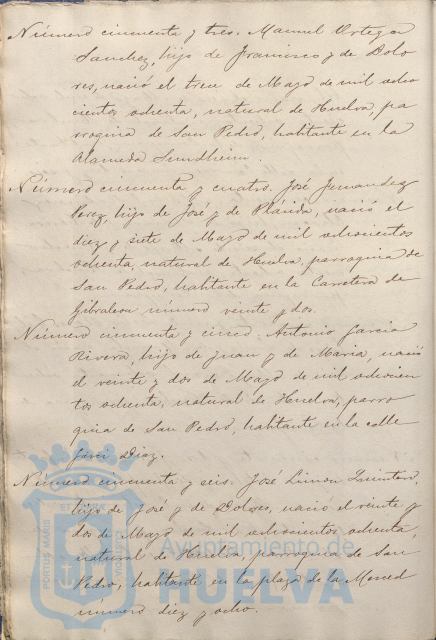 Número cincuenta y tres. Manuel Ortega
Sanchez, hijo de Francisco y de Dolo
res, nació el trece de Mayo de mil ocho
cientos ochenta, natural de Huelva, pa
rroquia de San Pedro, habitante en la
Alameda Sundheim.
Número cincuenta y cuatro. José Fernandez
Perez, hijo de José y de Plácida, nació el
diez y siete de Mayo de mil ochocientos
ochenta, natural de Huelva, parroquia de
San Pedro, habitante en la Carretera de
Gibraleon número veinte y dos.
Número cincuenta y cinco. Antonio Garcia
Rivera, hijo de Juan y de Maria, nació
el veinte y dos de Mayo de mil ochocien
tos ochenta, natural de Huelva, parro
quia de San Pedro, habitante en la calle
Garci Diaz.
Número cincuenta y seis. José Limon Quintero,
hijo de José y de Dolores, nació el veinte y
dos de Mayo de mil ochocientos ochenta,
natural de Huelva, parroquia de San
Pedro, habitante en la plaza de la Merced
número diez y ocho.
PORTUS MARIS ET
Ayuntamiento de
HUELVA